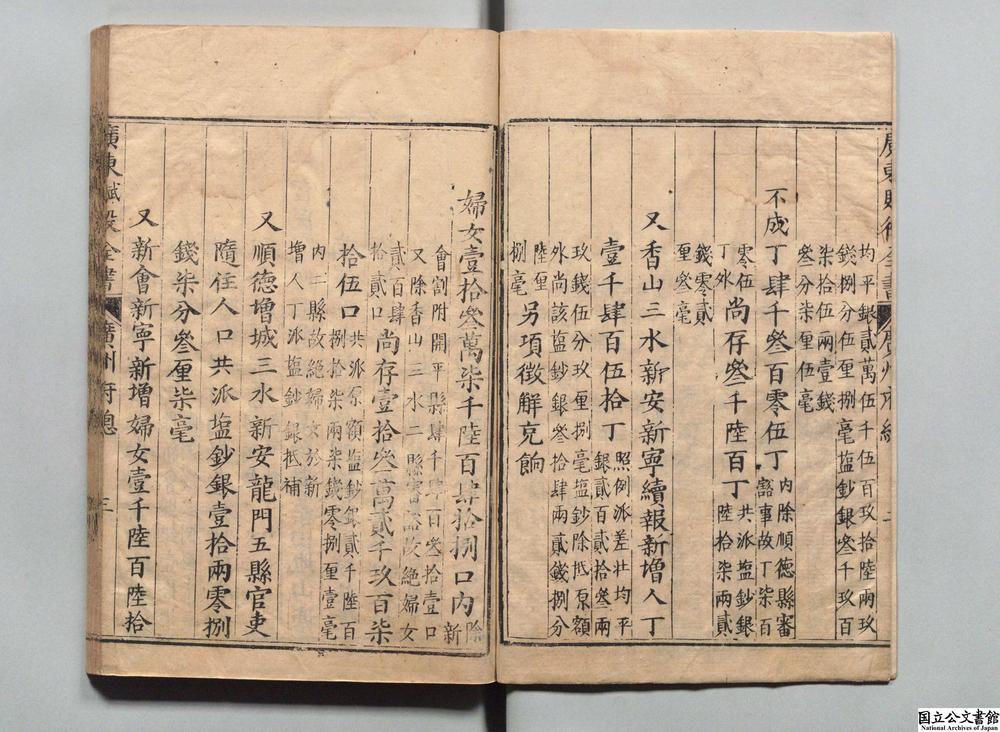 廣東賦役全書 廣州府總 二
均平銀貳萬伍千伍百玖拾陸兩玖
錢捌分伍厘捌毫塩鈔銀叄千玖百
柒拾伍兩壹錢
叄分柒厘伍毫
不成丁肆千叄百零伍丁
內除順德縣審
豁事故丁柒百
零伍
丁外
尚存叄千陸百丁
共派塩鈔銀
陸拾柒兩貳
錢零貳
厘叄毫
又香山三水新安新寧續報新增人丁
壹千肆百伍拾丁
照例派差壯均平
銀貳百貳拾叄兩
玖錢伍分玖厘捌毫塩鈔除抵原額
外尚該塩鈔銀叄拾肆兩貳錢捌分
陸厘
捌毫
另項徵解充餉
婦女壹拾叄萬柒千陸百肆拾捌口內
除
新
會割附開平縣肆千肆百叄拾壹口
又除香山三水二縣審豁故絕婦女
貳百肆
拾貳口
尚存壹拾叄萬貳千玖百柒
拾伍口
共派原額塩鈔銀貳千陸百
捌拾柒兩柒錢零捌厘壹毫
內二縣故絕婦女於新
增人丁派塩鈔銀抵補
又順德增城三水新安龍門五縣官吏
隨住人口共派塩鈔銀壹拾兩零捌
錢柒分叄厘柒毫
又新會新寧新增婦女壹千陸百陸拾
廣東賦役全書 廣州府總 三
国立公文書館
National Archives of Japan